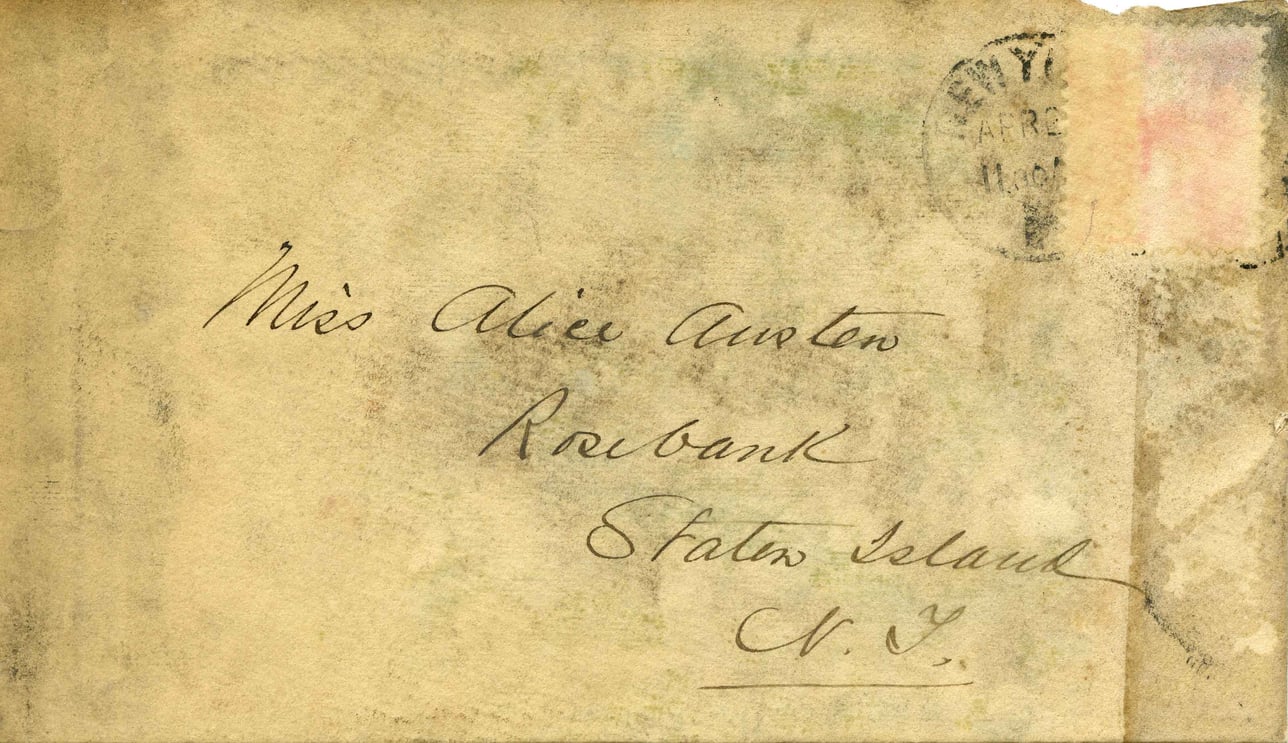 NEW YO
APR 2
11.00A
Miss Alice Austen
Rosebank
Staten Island
N. Y.